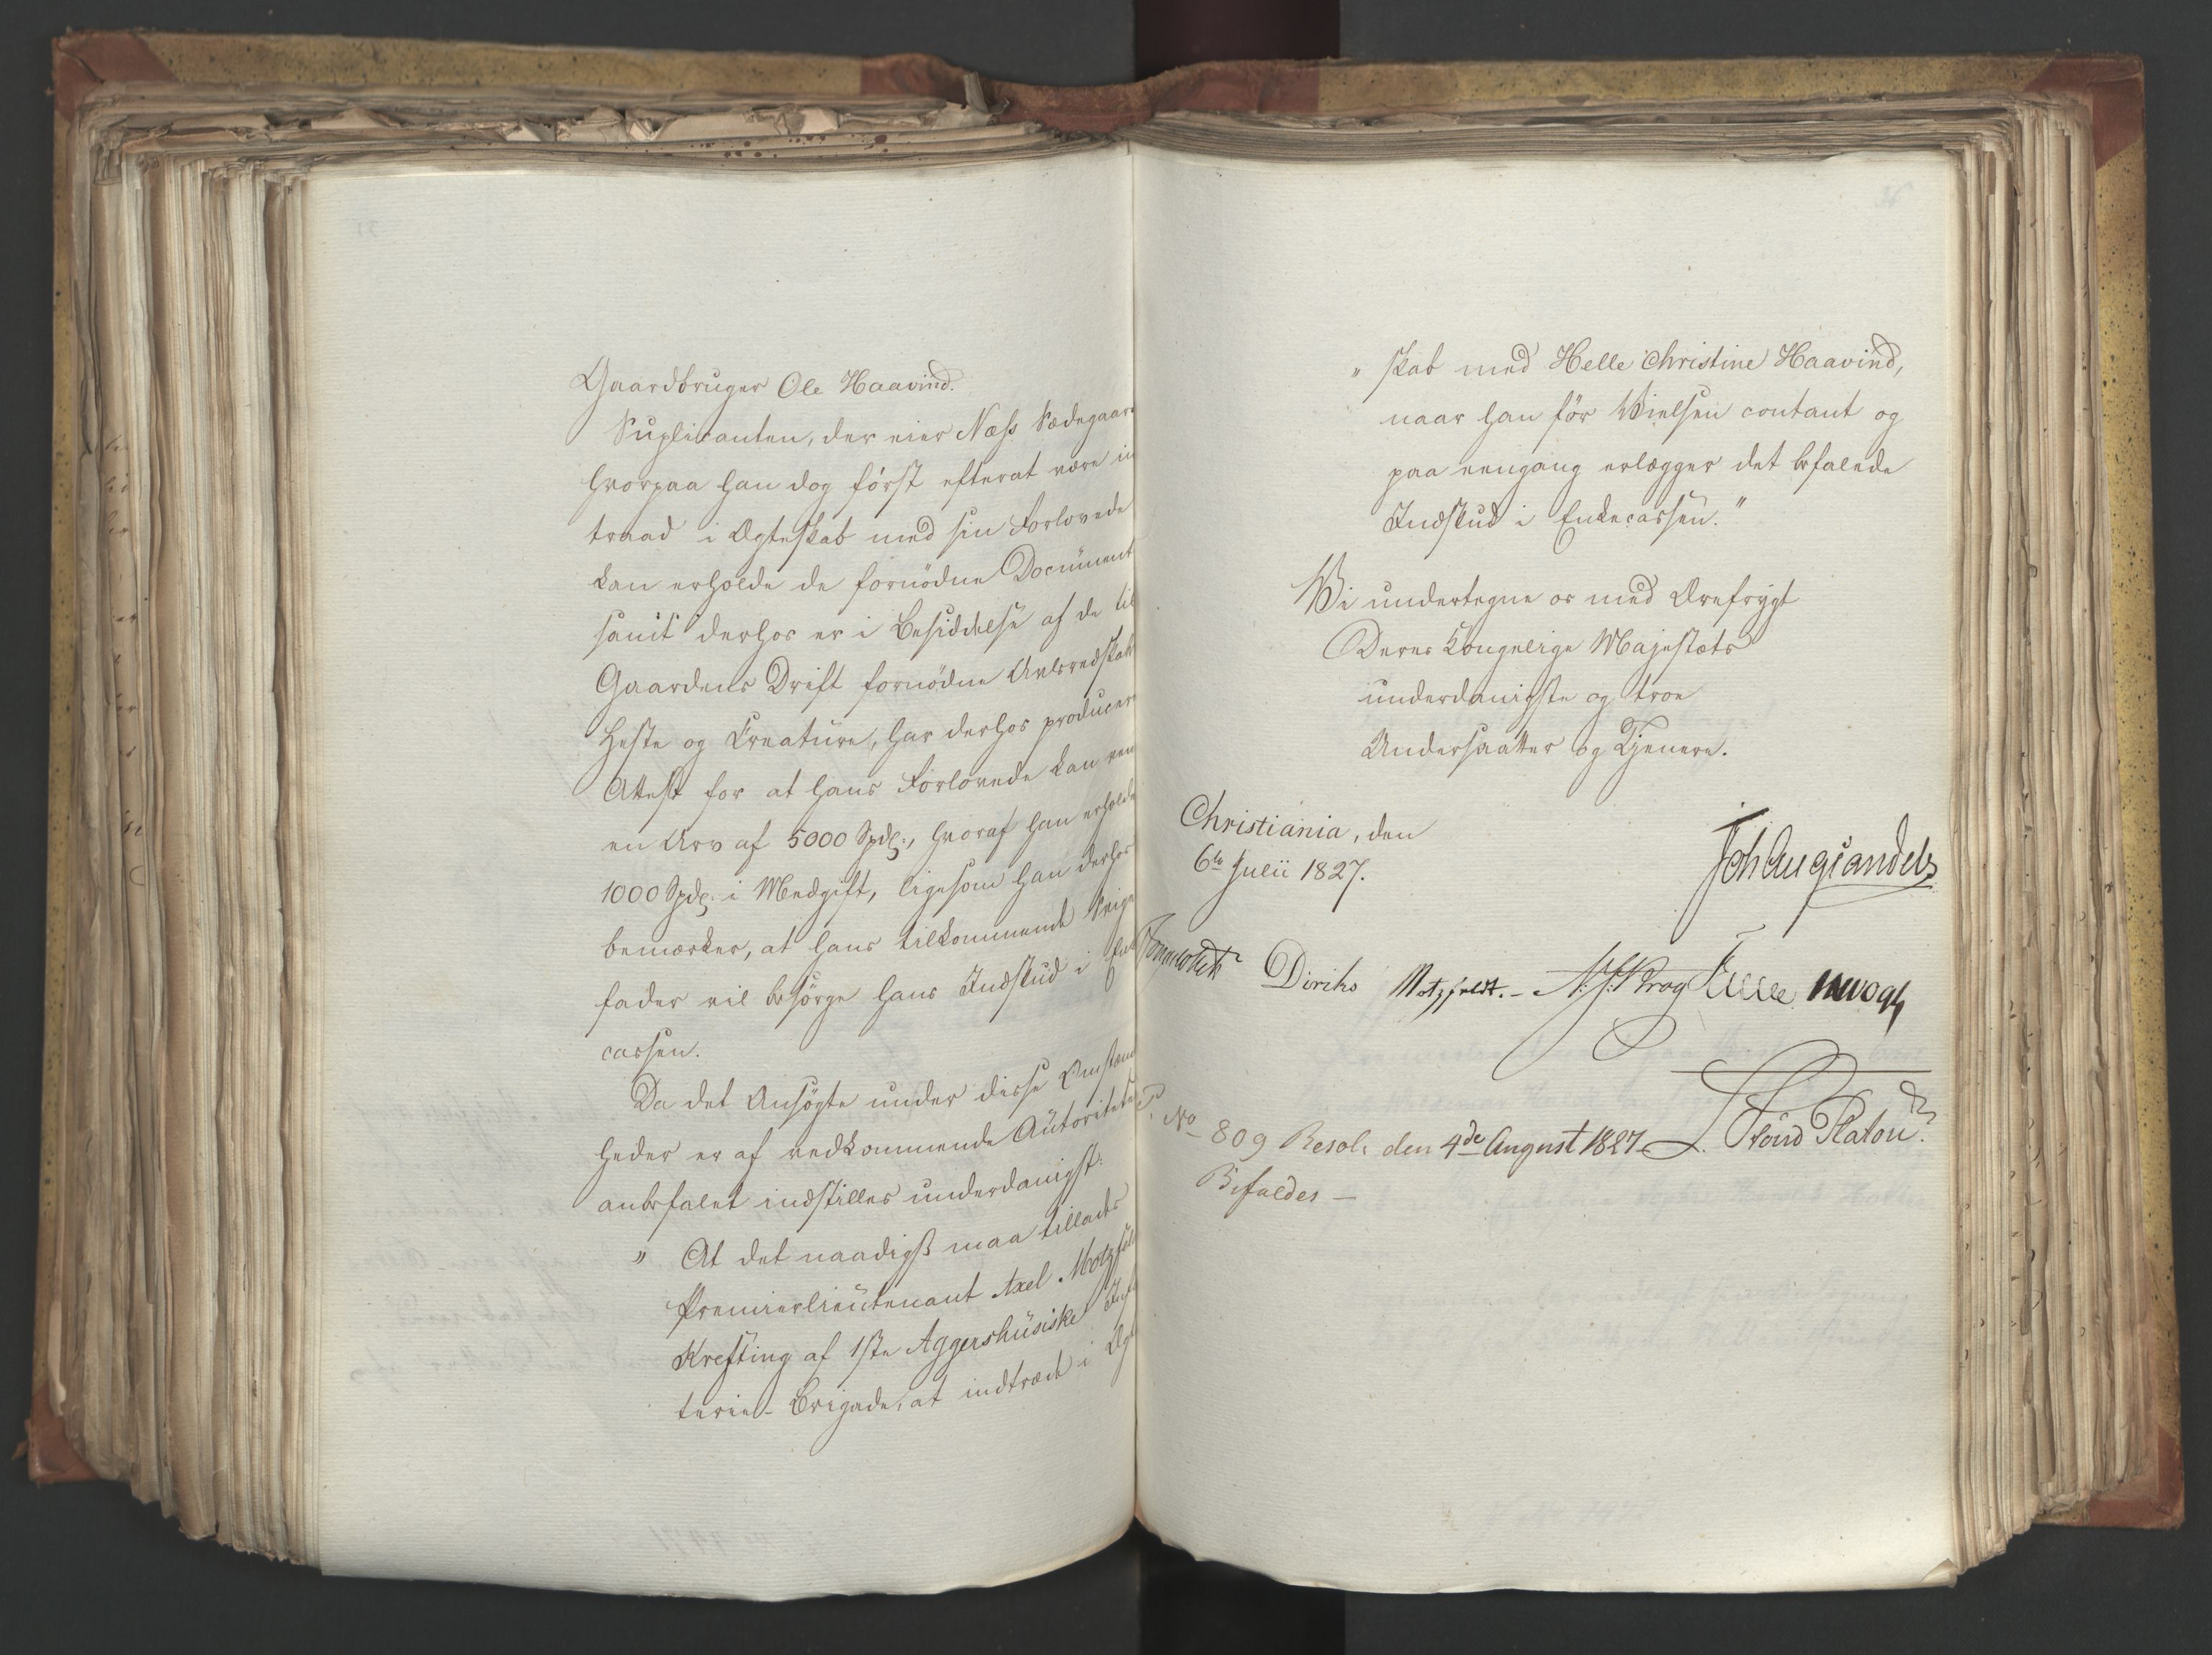 Gaardbruger Ole Haavind.
Suplicanten, der eier Næss Sædegaar
hvorpaa han dog først efterat være in
traad i Ægteskab med sin Forlovede
kan erholde de fornødne Document
samt derhos er i Besiddelse af de til
Gaardens Drift fornødne Avlsredskab
Heste og Creature, har derhos producer
Attest for at hans Forlovede kan ven
en Arv af 5000 Spdl:, hvoraf han erholde
1000 Spdl: i Medgift, ligesom han derhos
bemærker, at hans tilkommende Svige
fader vil besørge hans Indskud i Enk
cassen.
Da det Ansøgte under disse Omstæn
heder er af vedkommende Autoritete
anbefalet indstilles underdanigst:
" At det naadigst maa tillades
Premierlieutenant Axel Motzfel
Krefting af 1ste Aggershusiske Inf
terie-Brigade, at indtræde i Ægt
" skab med Helle Christine Haavind,
naar han før Vielsen contant og
paa eengang erlægger det befalede
Indskud i Enkecassen."
Vi undertegne os med Ærefrygt
Deres Kongelige Majestæts
underdanigste og troe
Undersaatter og Tjenere.
Christiania, den
6te Julii 1827.
Joh Aug Sandels
Sommerhielm Diriks Motzfeldt. - N. J. Krog Treschow
L. Stoud Platou
No 809 Resol: den 4de August 1827
Bifaldes -